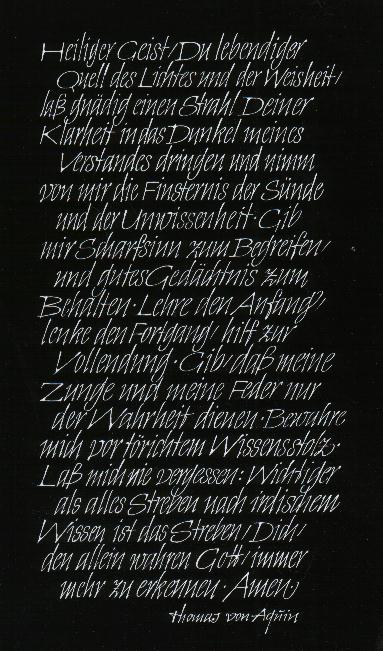 Heiliger Geist/Du lebendiger
Quell des Lichtes und der Weisheit/
laß gnädig einen Strahl Deiner
Klarheit in das Dunkel meines
Verstandes dringen und nimm
von mir die Finsternis der Sünde
und der Unwissenheit· Gib
mir Scharfsinn zum Begreifen/
und gutes Gedächtnis zum
Behalten· Lehre den Anfang/
lenke den Fortgang/ hilf zur
Vollendung· Gib/ daß meine
Zunge und meine Feder nur
der Wahrheit dienen· Bewahre
mich vor törichtem Wissensstolz·
Laß mich nie vergessen: Wichtiger
als alles Streben nach irdischem
Wissen ist das Streben/ Dich/
den allein wahren Gott/ immer
mehr zu erkennen· Amen/
Thomas von Aquin